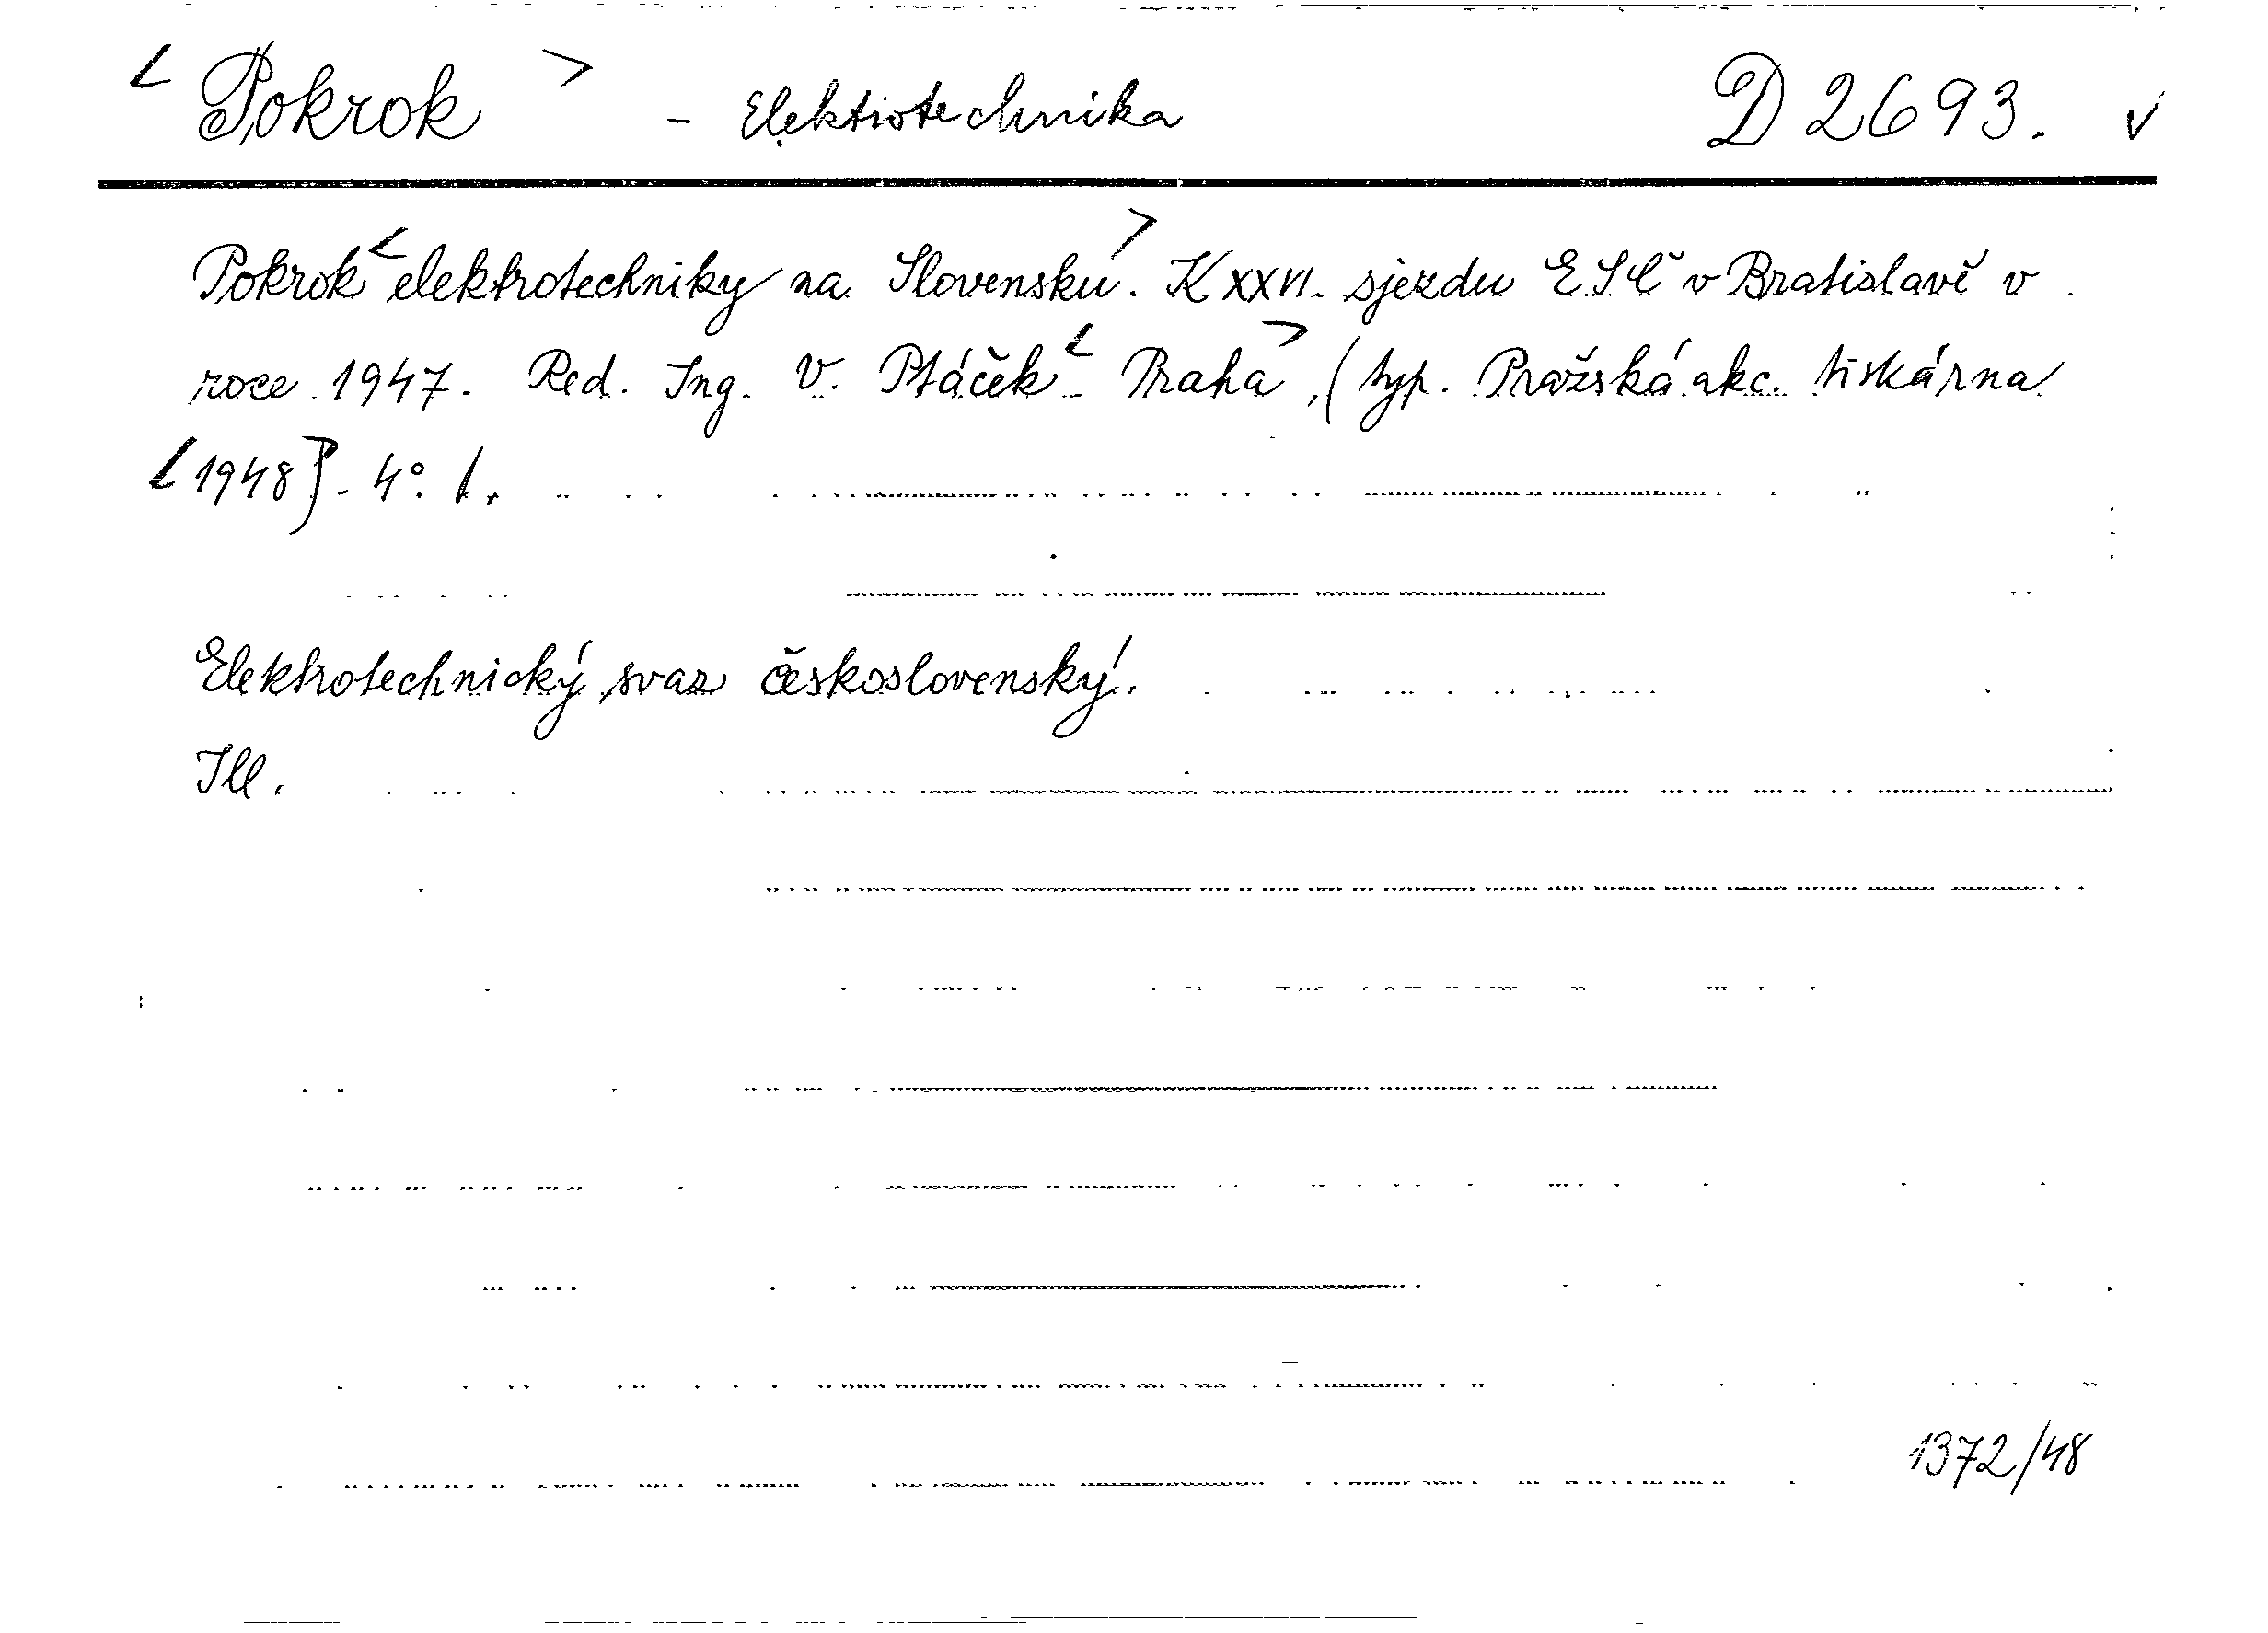 < Pokrok > - Elektrotechnika D 2693. ✓
Pokrok < elektrotechniky na Slovensku >. K XXVI. sjezdu E.S.Č v Bratislavě v
roce 1947. Red. Ing. V. Ptáček < Praha >, (typ. Pražská akc. tiskárna
<1948>]. 4°. 1.
Elektrotechnický svaz československý.
Ill.
1372/48